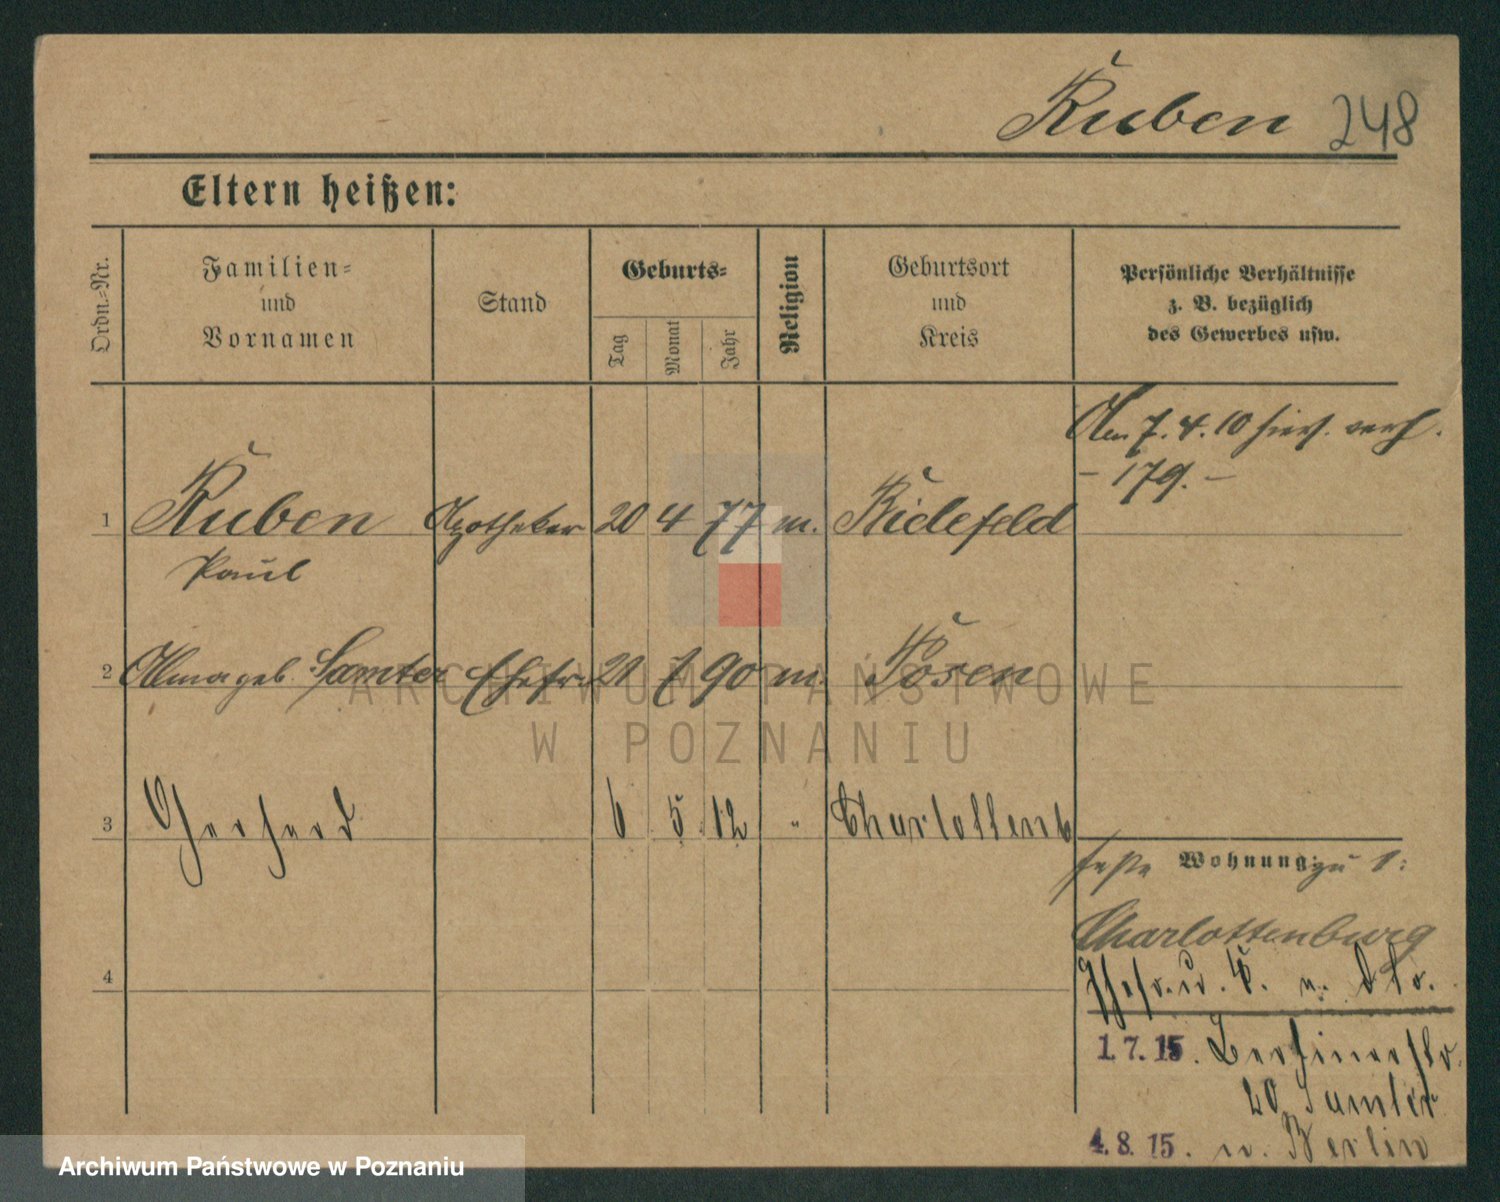 Ruben 248
Eltern heißen:
Ordn.-Nr. Familien- und Vornamen Stand Geburts- Tag Monat Jahr Religion Geburtsort und Kreis Persönliche Verhältnisse z. B. bezüglich des Gewerbes usw.
Am 7.4.10 hier verh.
- 179. -
1 Ruben Apotheker 20 4 77 m. Bielefeld
Paul
2 Alma geb. Samter Ehefr. 21 7 90 m. Posen
3 Gerhard 6 5 12 " Charlottenb
Wohnung: zu 1:
Charlottenburg
4
1.7.15. Berlinerstr.
20 Samter
4.8.15. n. Berlin
ARCHIWUM PAŃSTWOWE
W POZNANIU
Archiwum Państwowe w Poznaniu